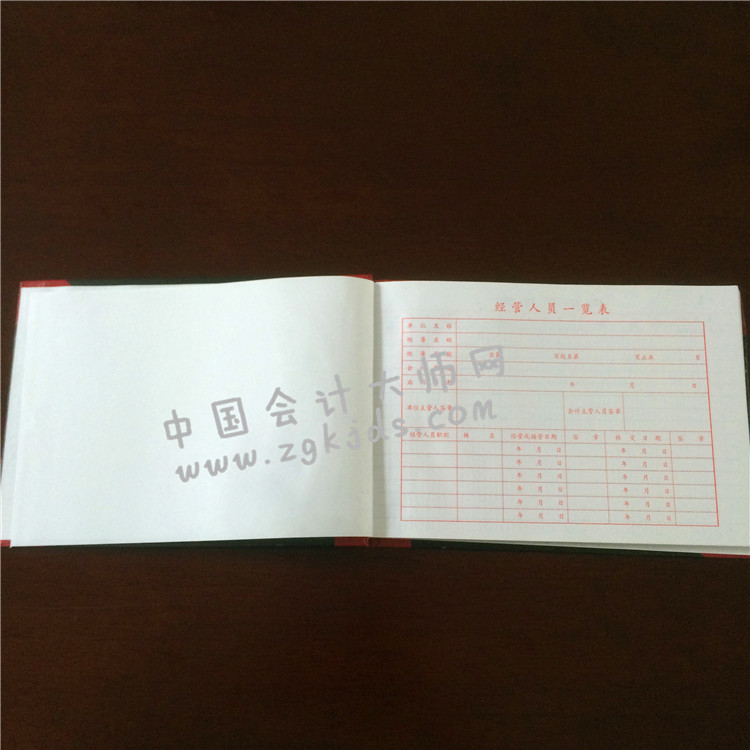 经管人员一览表
单位名称
账簿名称
账簿页数 自第 页起至第 页止共 页
年 月 日
单位主管人签章 会计主管人员签章
经管人员职别 姓名 经管或接管日期 签章 移交日期 签章
年 月 日 年 月 日
年 月 日 年 月 日
年 月 日 年 月 日
年 月 日 年 月 日
年 月 日 年 月 日
年 月 日 年 月 日
中国会计大师网
www.zgkjds.com